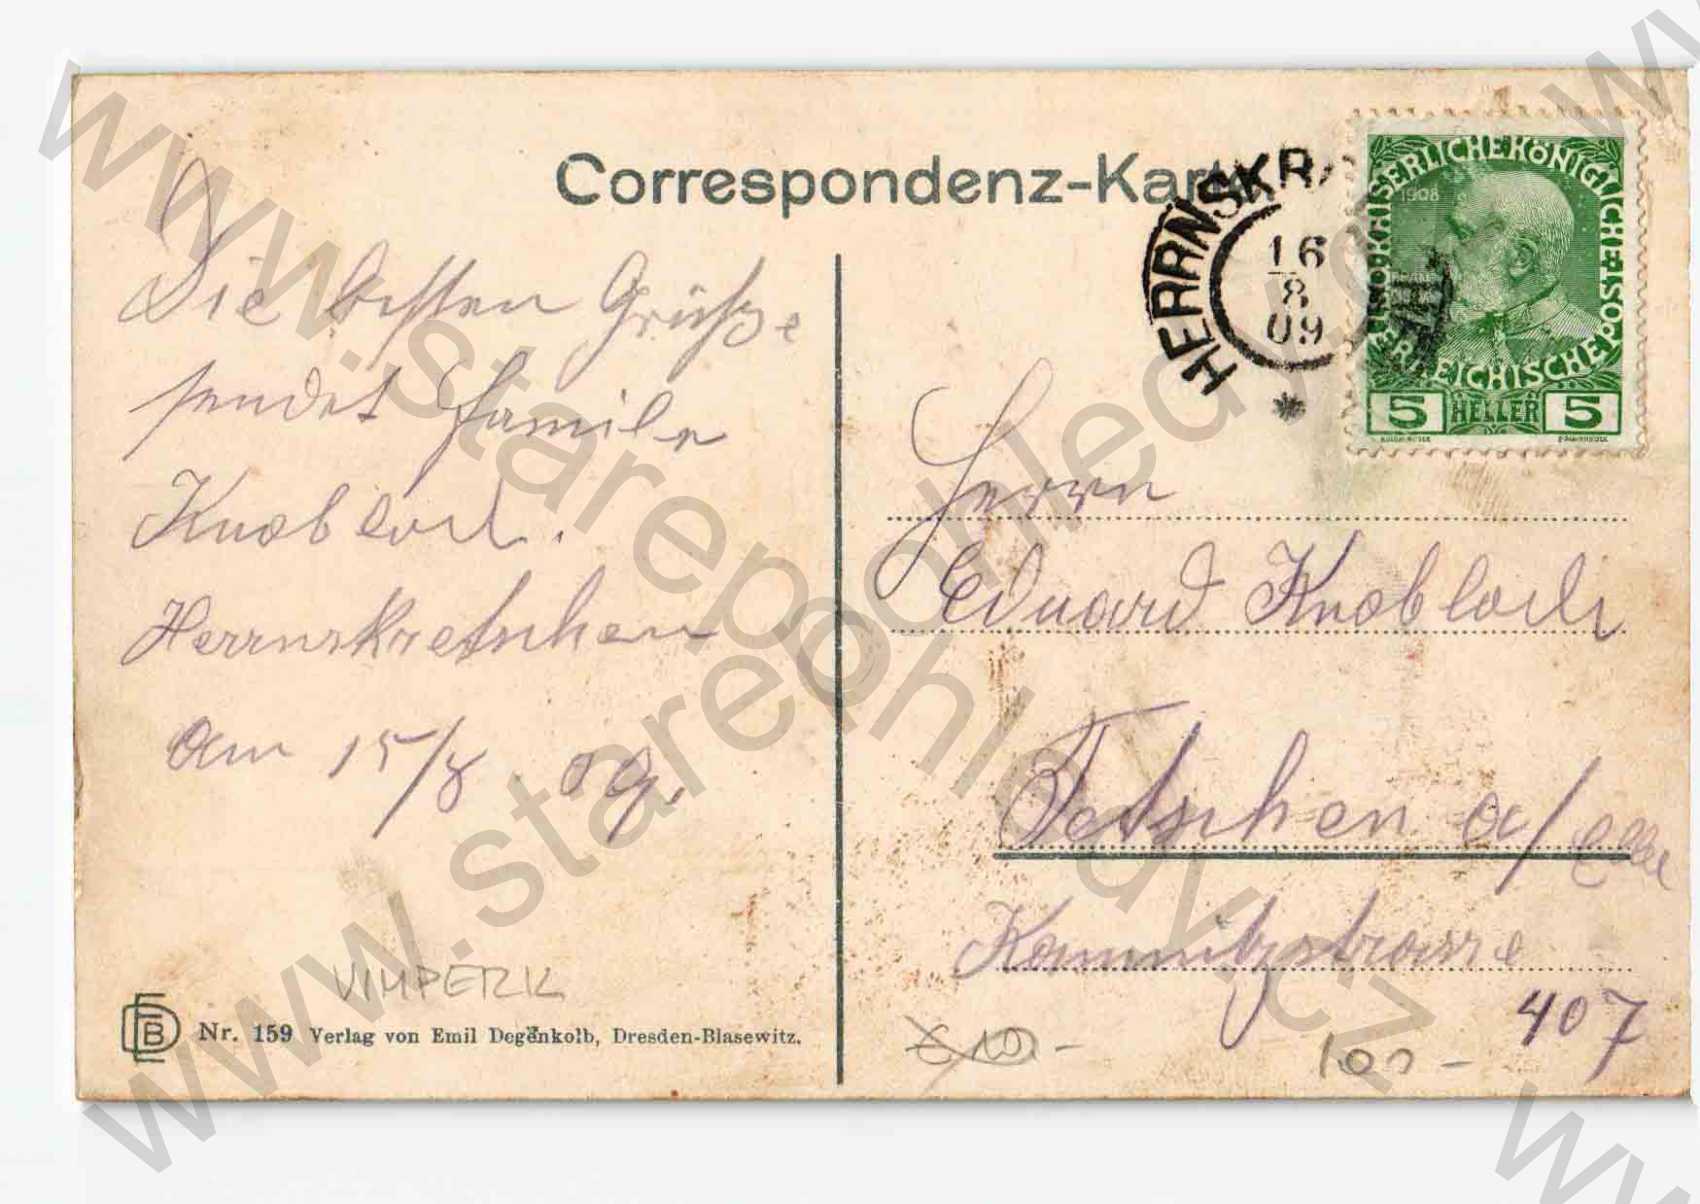 Correspondenz-Karte
HERRNSKR
16
8
09
KAISERLICHEKÖNIGLICHE
ÖSTERREICHISCHE POST
1908
5 HELLER 5
Die besten Grüße
sendet Familie
Knobloch.
Herrnskretschen
am 15/8. 09.
Herrn
Eduard Knobloch
Tetschen a/Elbe
Kamnitzstrasse
407
VIMPERK
100 -
DEB Nr. 159 Verlag von Emil Degenkolb, Dresden-Blasewitz.
www.starepohledy.cz
www.starepohledy.cz